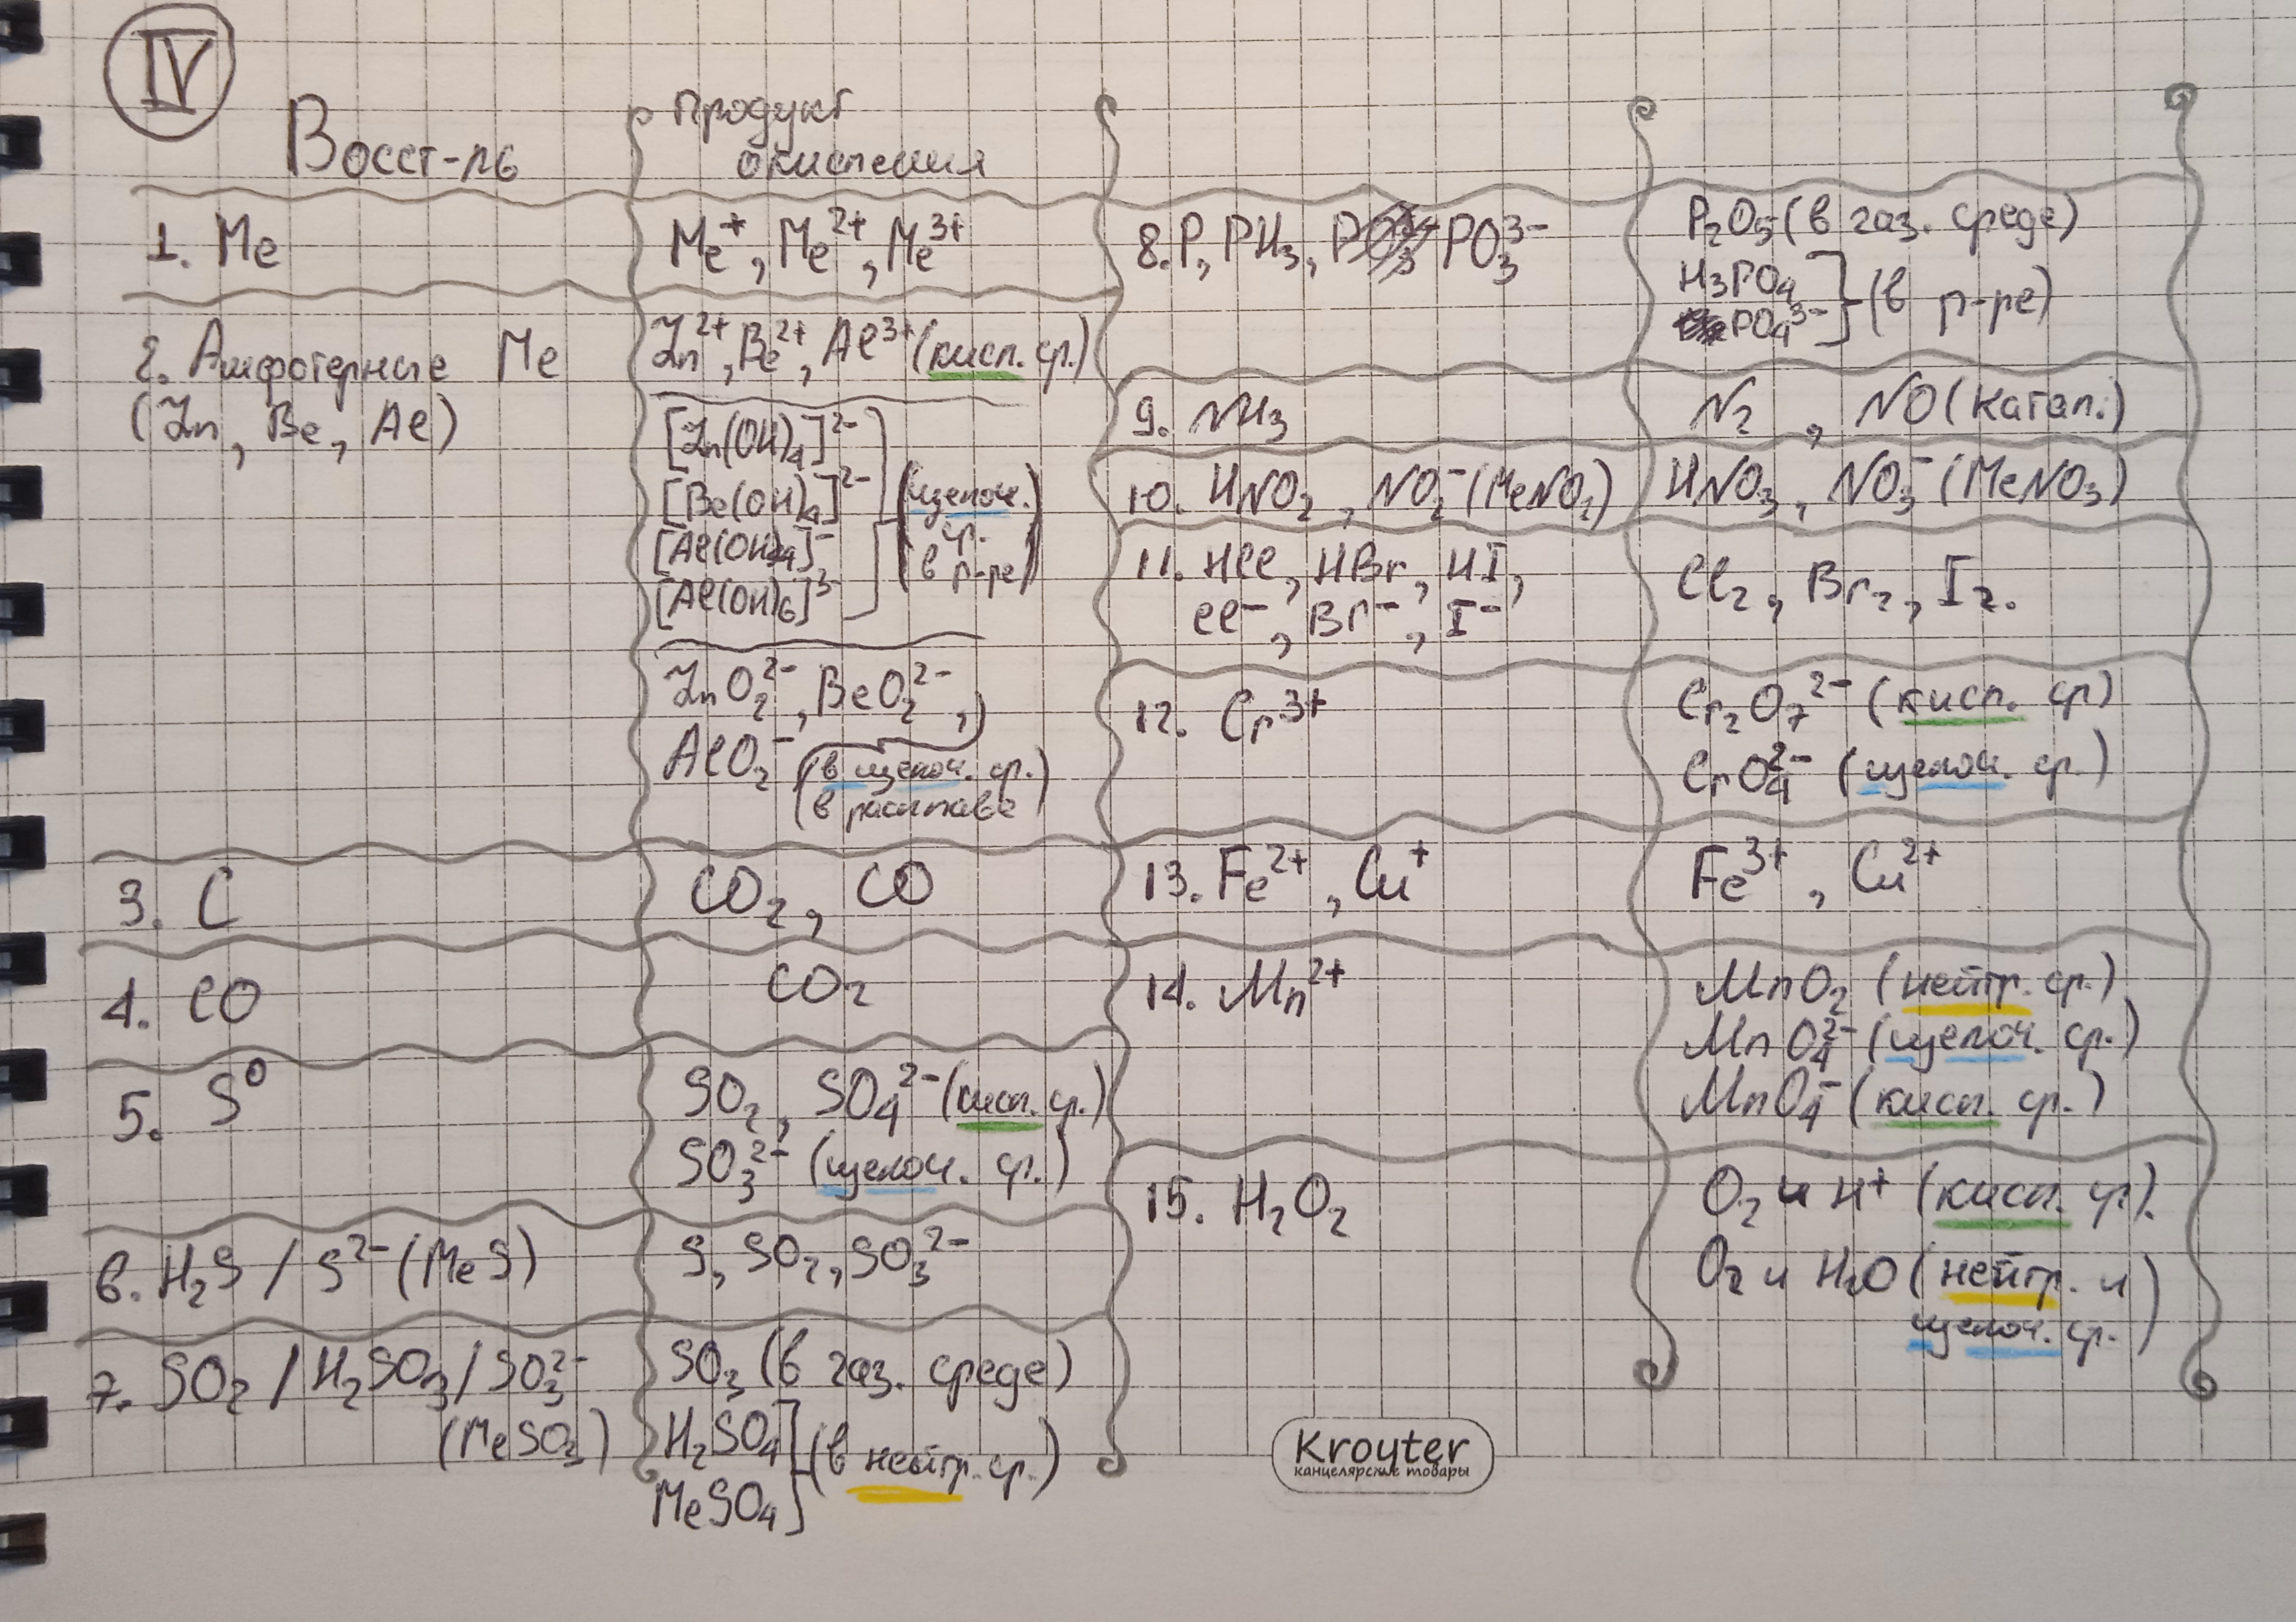 IV
Восст-ль
Продукт
окисления
1. Me
Me⁺, Me²⁺, Me³⁺
2. Амфотерные Me
(Zn, Be, Al)
Zn²⁺, Be²⁺, Al³⁺ (кисл. ср.)
[Zn(OH)₄]²⁻
[Be(OH)₄]²⁻
[Al(OH)₄]⁻
[Al(OH)₆]³⁻
(щелоч.
ср.
в р-ре)
ZnO₂²⁻, BeO₂²⁻,
AlO₂⁻ (в щелоч. ср.
в расплаве)
3. C
CO₂, CO
4. CO
CO₂
5. S⁰
SO₂, SO₄²⁻ (кисл. ср.)
SO₃²⁻ (щелоч. ср.)
6. H₂S / S²⁻ (MeS)
S, SO₂, SO₃²⁻
7. SO₂ / H₂SO₃ / SO₃²⁻
(MeSO₃)
SO₃ (в газ. среде)
H₂SO₄
MeSO₄
(в нейтр. ср.)
8. P, PH₃, PO₃³⁻
P₂O₅ (в газ. среде)
H₃PO₄
PO₄³⁻
(в р-ре)
9. NH₃
N₂, NO (катал.)
10. HNO₂, NO₂⁻ (MeNO₂)
HNO₃, NO₃⁻ (MeNO₃)
11. HCl, HBr, HI,
Cl⁻, Br⁻, I⁻
Cl₂, Br₂, I₂.
12. Cr³⁺
Cr₂O₇²⁻ (кисл. ср)
CrO₄²⁻ (щелоч. ср.)
13. Fe²⁺, Cu⁺
Fe³⁺, Cu²⁺
14. Mn²⁺
MnO₂ (нейтр. ср.)
MnO₄²⁻ (щелоч. ср.)
MnO₄⁻ (кисл. ср.)
15. H₂O₂
O₂ и H⁺ (кисл. ср).
O₂ и H₂O (нейтр. и
щелоч. ср.)
Kroyter
канцелярские товары